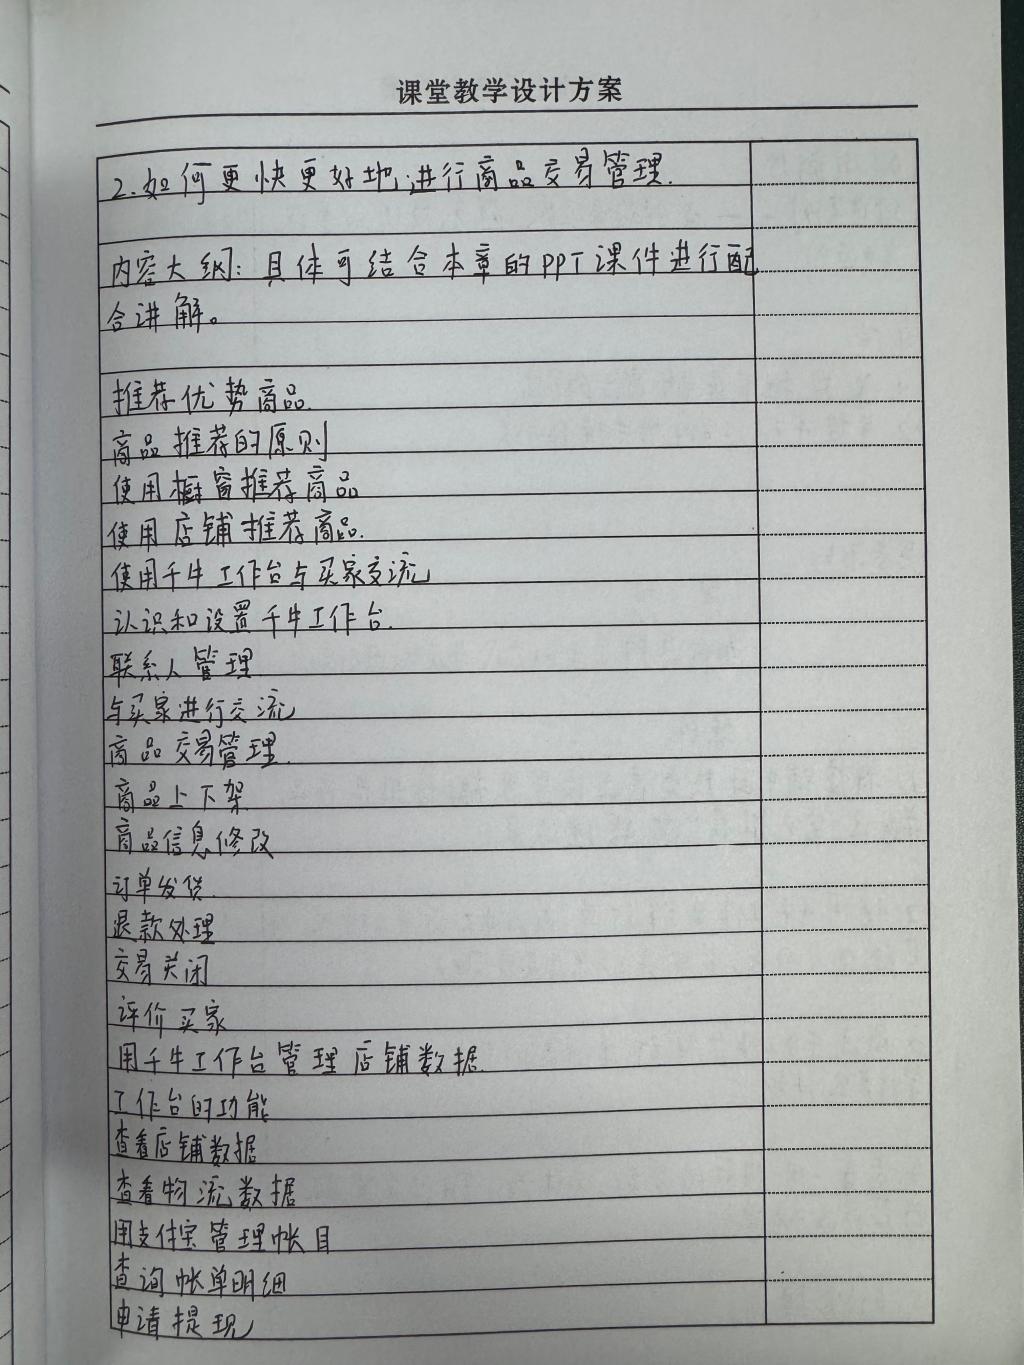 课堂教学设计方案
2.如何更快更好地进行商品交易管理.
内容大纲:具体可结合本章的PPT课件进行配
合讲解。
推荐优势商品.
商品推荐的原则
使用橱窗推荐商品
使用店铺推荐商品.
使用千牛工作台与买家交流
认识和设置千牛工作台.
联系人管理
与买家进行交流
商品交易管理.
商品上下架
商品信息修改
订单发货.
退款处理
交易关闭
评价买家
用千牛工作台管理店铺数据.
工作台的功能
查看店铺数据
查看物流数据
用支付宝管理帐目
查询帐单明细
申请提现